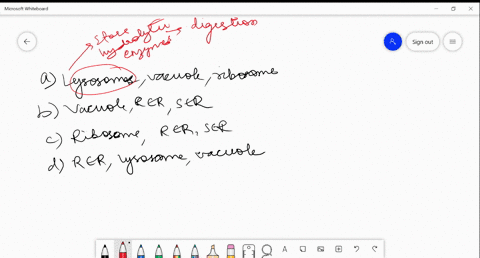 Microsoft Whiteboard
Sign out
store
hydrolytic → digestion
enzymes
a) Lysosome, vacuole, ribosome
b) Vacuole, RER, SER
c) Ribosome, RER, SER
d) RER, lysosome, vacuole